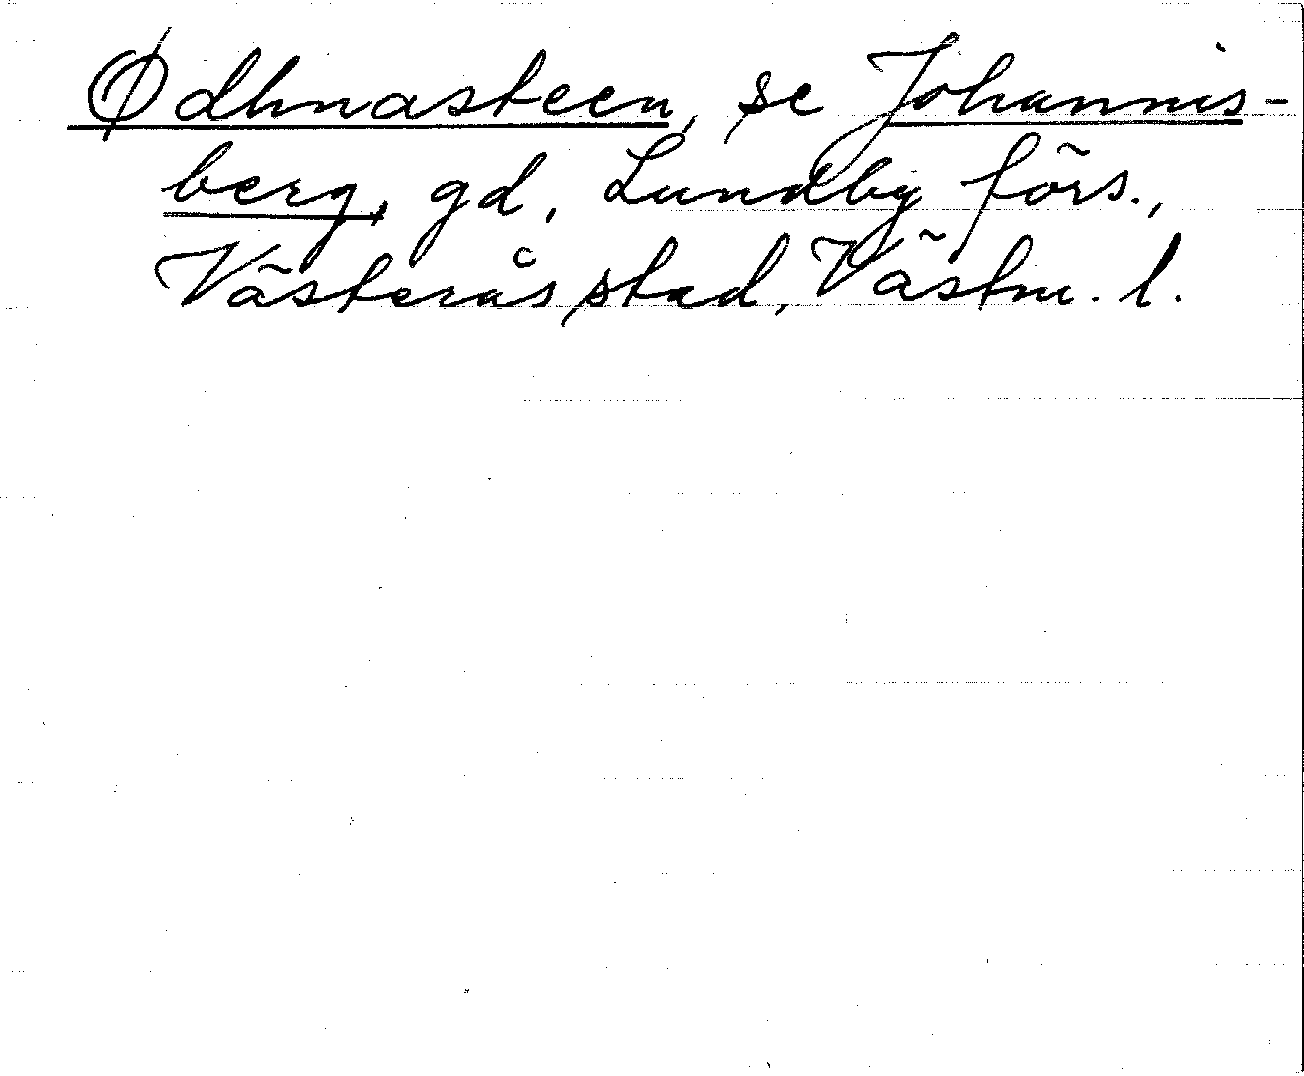 Ødhnasteen, se Johannis-
berg, gd, Lundby förs.,
Västerås stad, Västm. l.